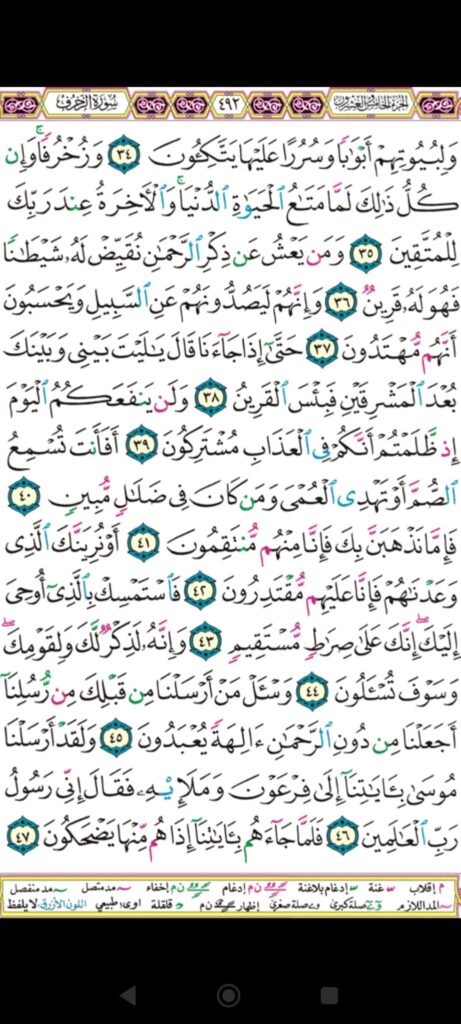 الجزء الخامس والعشرون ٤٩٢ سورة الزخرف
وَلِبُيُوتِهِمْ أَبْوَٰبًا وَسُرُرًا عَلَيْهَا يَتَّكِـُٔونَ ٣٤ وَزُخْرُفًا ۚ وَإِن
كُلُّ ذَٰلِكَ لَمَّا مَتَـٰعُ ٱلْحَيَوٰةِ ٱلدُّنْيَا ۚ وَٱلْـَٔاخِرَةُ عِندَ رَبِّكَ
لِلْمُتَّقِينَ ٣٥ وَمَن يَعْشُ عَن ذِكْرِ ٱلرَّحْمَـٰنِ نُقَيِّضْ لَهُۥ شَيْطَـٰنًا
فَهُوَ لَهُۥ قَرِينٌ ٣٦ وَإِنَّهُمْ لَيَصُدُّونَهُمْ عَنِ ٱلسَّبِيلِ وَيَحْسَبُونَ
أَنَّهُم مُّهْتَدُونَ ٣٧ حَتَّىٰٓ إِذَا جَآءَنَا قَالَ يَـٰلَيْتَ بَيْنِى وَبَيْنَكَ
بُعْدَ ٱلْمَشْرِقَيْنِ فَبِئْسَ ٱلْقَرِينُ ٣٨ وَلَن يَنفَعَكُمُ ٱلْيَوْمَ
إِذ ظَّلَمْتُمْ أَنَّكُمْ فِى ٱلْعَذَابِ مُشْتَرِكُونَ ٣٩ أَفَأَنتَ تُسْمِعُ
ٱلصُّمَّ أَوْ تَهْدِى ٱلْعُمْىَ وَمَن كَانَ فِى ضَلَـٰلٍ مُّبِينٍ ٤٠
فَإِمَّا نَذْهَبَنَّ بِكَ فَإِنَّا مِنْهُم مُّنتَقِمُونَ ٤١ أَوْ نُرِيَنَّكَ ٱلَّذِى
وَعَدْنَـٰهُمْ فَإِنَّا عَلَيْهِم مُّقْتَدِرُونَ ٤٢ فَٱسْتَمْسِكْ بِٱلَّذِىٓ أُوحِىَ
إِلَيْكَ ۖ إِنَّكَ عَلَىٰ صِرَٰطٍ مُّسْتَقِيمٍ ٤٣ وَإِنَّهُۥ لَذِكْرٌ لَّكَ وَلِقَوْمِكَ ۖ
وَسَوْفَ تُسْـَٔلُونَ ٤٤ وَسْـَٔلْ مَنْ أَرْسَلْنَا مِن قَبْلِكَ مِن رُّسُلِنَآ
أَجَعَلْنَا مِن دُونِ ٱلرَّحْمَـٰنِ ءَالِهَةً يُعْبَدُونَ ٤٥ وَلَقَدْ أَرْسَلْنَا
مُوسَىٰ بِـَٔايَـٰتِنَآ إِلَىٰ فِرْعَوْنَ وَمَلَإِيْهِۦ فَقَالَ إِنِّى رَسُولُ
رَبِّ ٱلْعَـٰلَمِينَ ٤٦ فَلَمَّا جَآءَهُم بِـَٔايَـٰتِنَآ إِذَا هُم مِّنْهَا يَضْحَكُونَ ٤٧
م إقلاب غنة إدغام بلاغنة ن م إدغام ن م إخفاء مد متصل مد منفصل
المد اللازم صلة كبرى صلة صغرى إظهار ن م قلقلة اوى: طبيعي اللون الأزرق: لا يلفظ